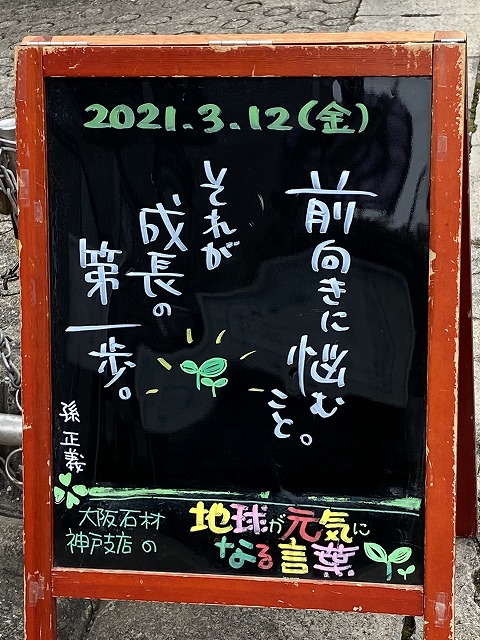 2021.3.12(金)
前向きに悩む
こと。
それが
成長の
第一歩。
孫正義
大阪石材
神戸支店の
地球が元気に
なる言葉